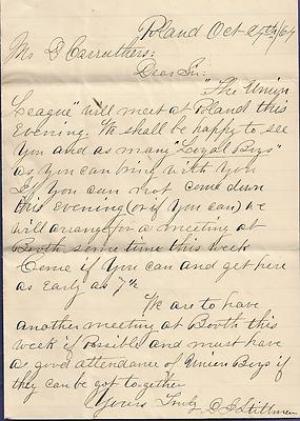 Poland Oct 24th/64
Mr D Carruthers:
Dear Sir:
"The Union
League" will meet at Poland this
Evening. We shall be happy to see
you and as many "Loyal Boys"
as you can bring with you
If you can not come down
this evening (or if you can) we
will arrange for a meeting at
Booth some time this week
Come if you can and get here
as Early as 7 h
We are to have
another meeting at Booth this
week if possible and must have
as good attendance of Union Boys if
they can be got together
Yours Truly, Stillman